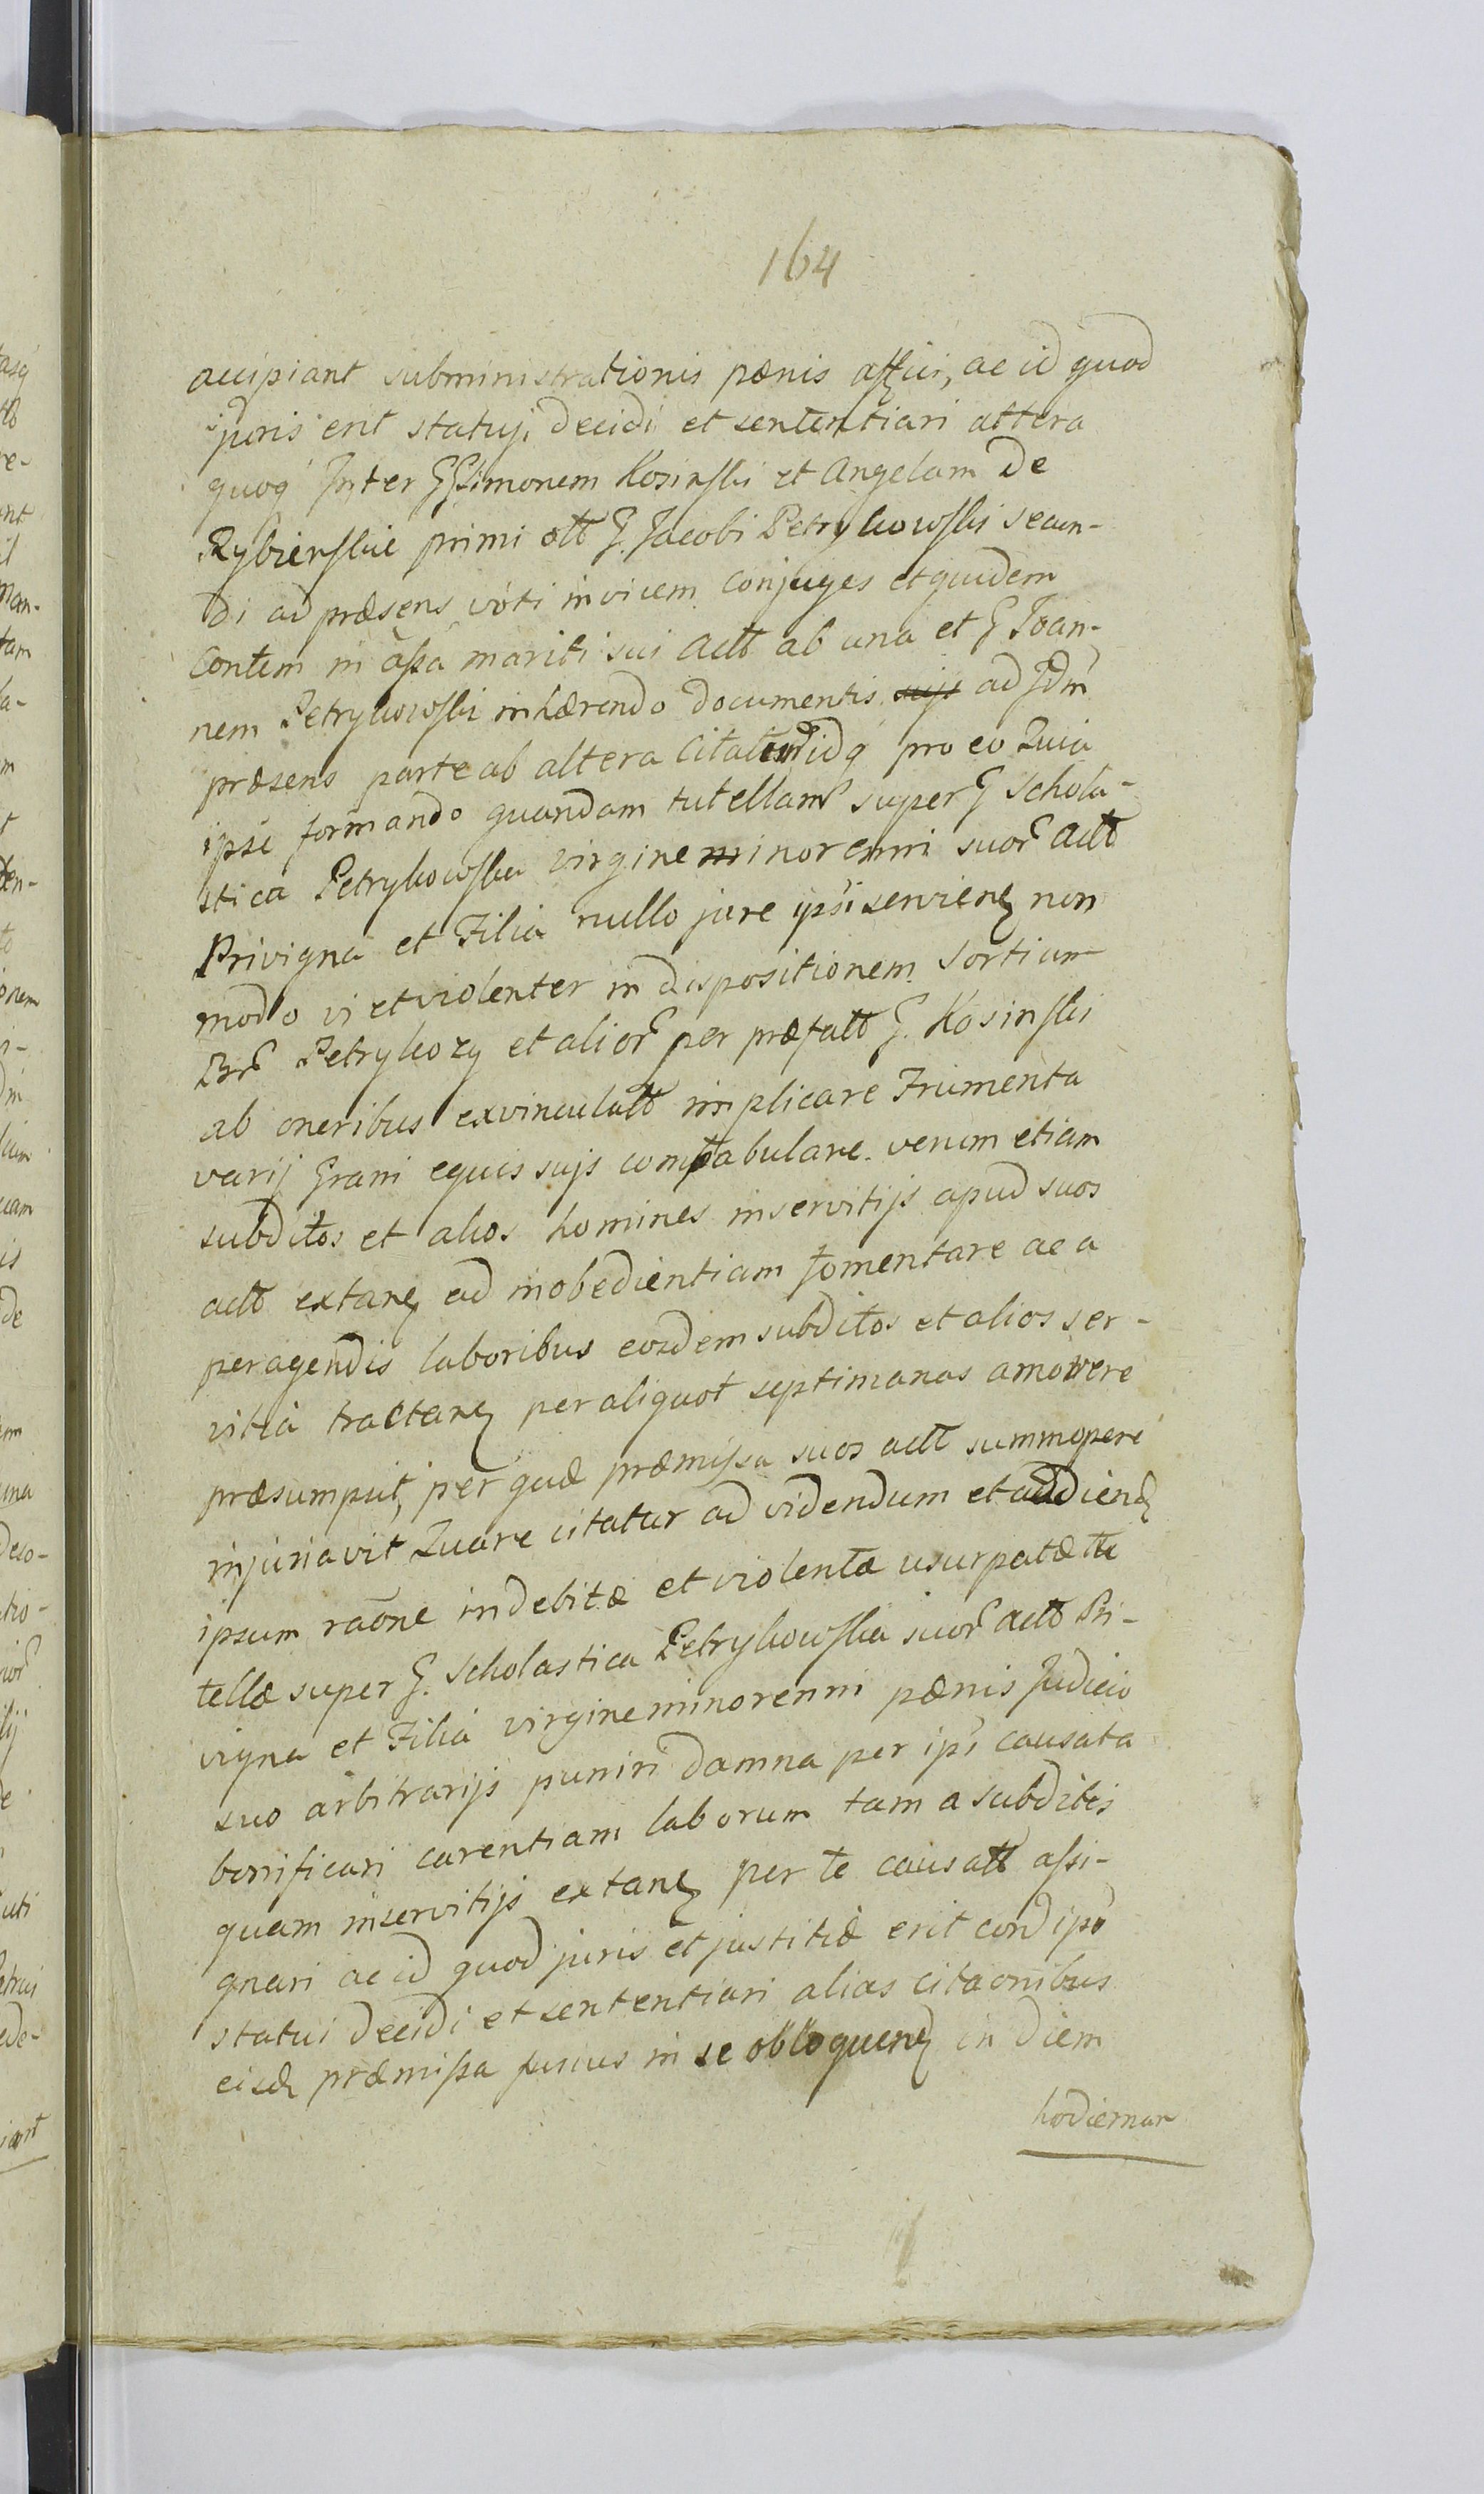 164
accipiant subministrationis pænis affici, ac id quod
juris erit statuji decidi et sententiari altera
quoq Inter GSimonem Kosinski et Angelam De
Rybienskie primi ott G. Jacobi Petrykowski secun-
di ad præsens voti invicem conjuges et quidem
Contem in assã mariti sui Actt ab una et G Joan-
nem Petrykowski inhærendo documentis suis ad Jdm
præsens parte ab altera Citatum idq pro eo Quia
ipse formando quandam tutellam super G Schola-
stica Petrykowska virgine minorenni suor Actt
Privigna et Filia nullo jure ipsi servieñ non
modo vi et violenter in dispositionem sortium
Petrykozy et alior per præfatt G. Kosinski
ab oneribus exvinculatt implicare Frumenta
varij Grani equis sujs comtabulare verum etiam
subditos et alios homines in servitijs apud suos
actt extañ ad inobedientiam fomentare ac a
peragendis laboribus eosdem subditos et alios ser-
vitia tractañ per aliquot septimanas amovere
præsumpsit, per quæ præmissa suos actt summopere
injuriavit Quare citatur ad videndum et audiend
ipsum raõne indebitæ et violentæ usurpatæ tu
tellæ super G. Scholastica Petrykowska suor Actt Pri-
vigna et Filia virgine minorenni pænis Judicio
suo arbitrarijs puniri damna per ips causata
bonificari carentiam laborum tam a subditis
quam in servitijs extañ per te causatt assi-
gnari ac id quod juris et justitiæ erit cond ipso
statui decidi et sententiari alias citaonibus
eisd præmissa fusius in se obloqueñ in diem
hodiernam